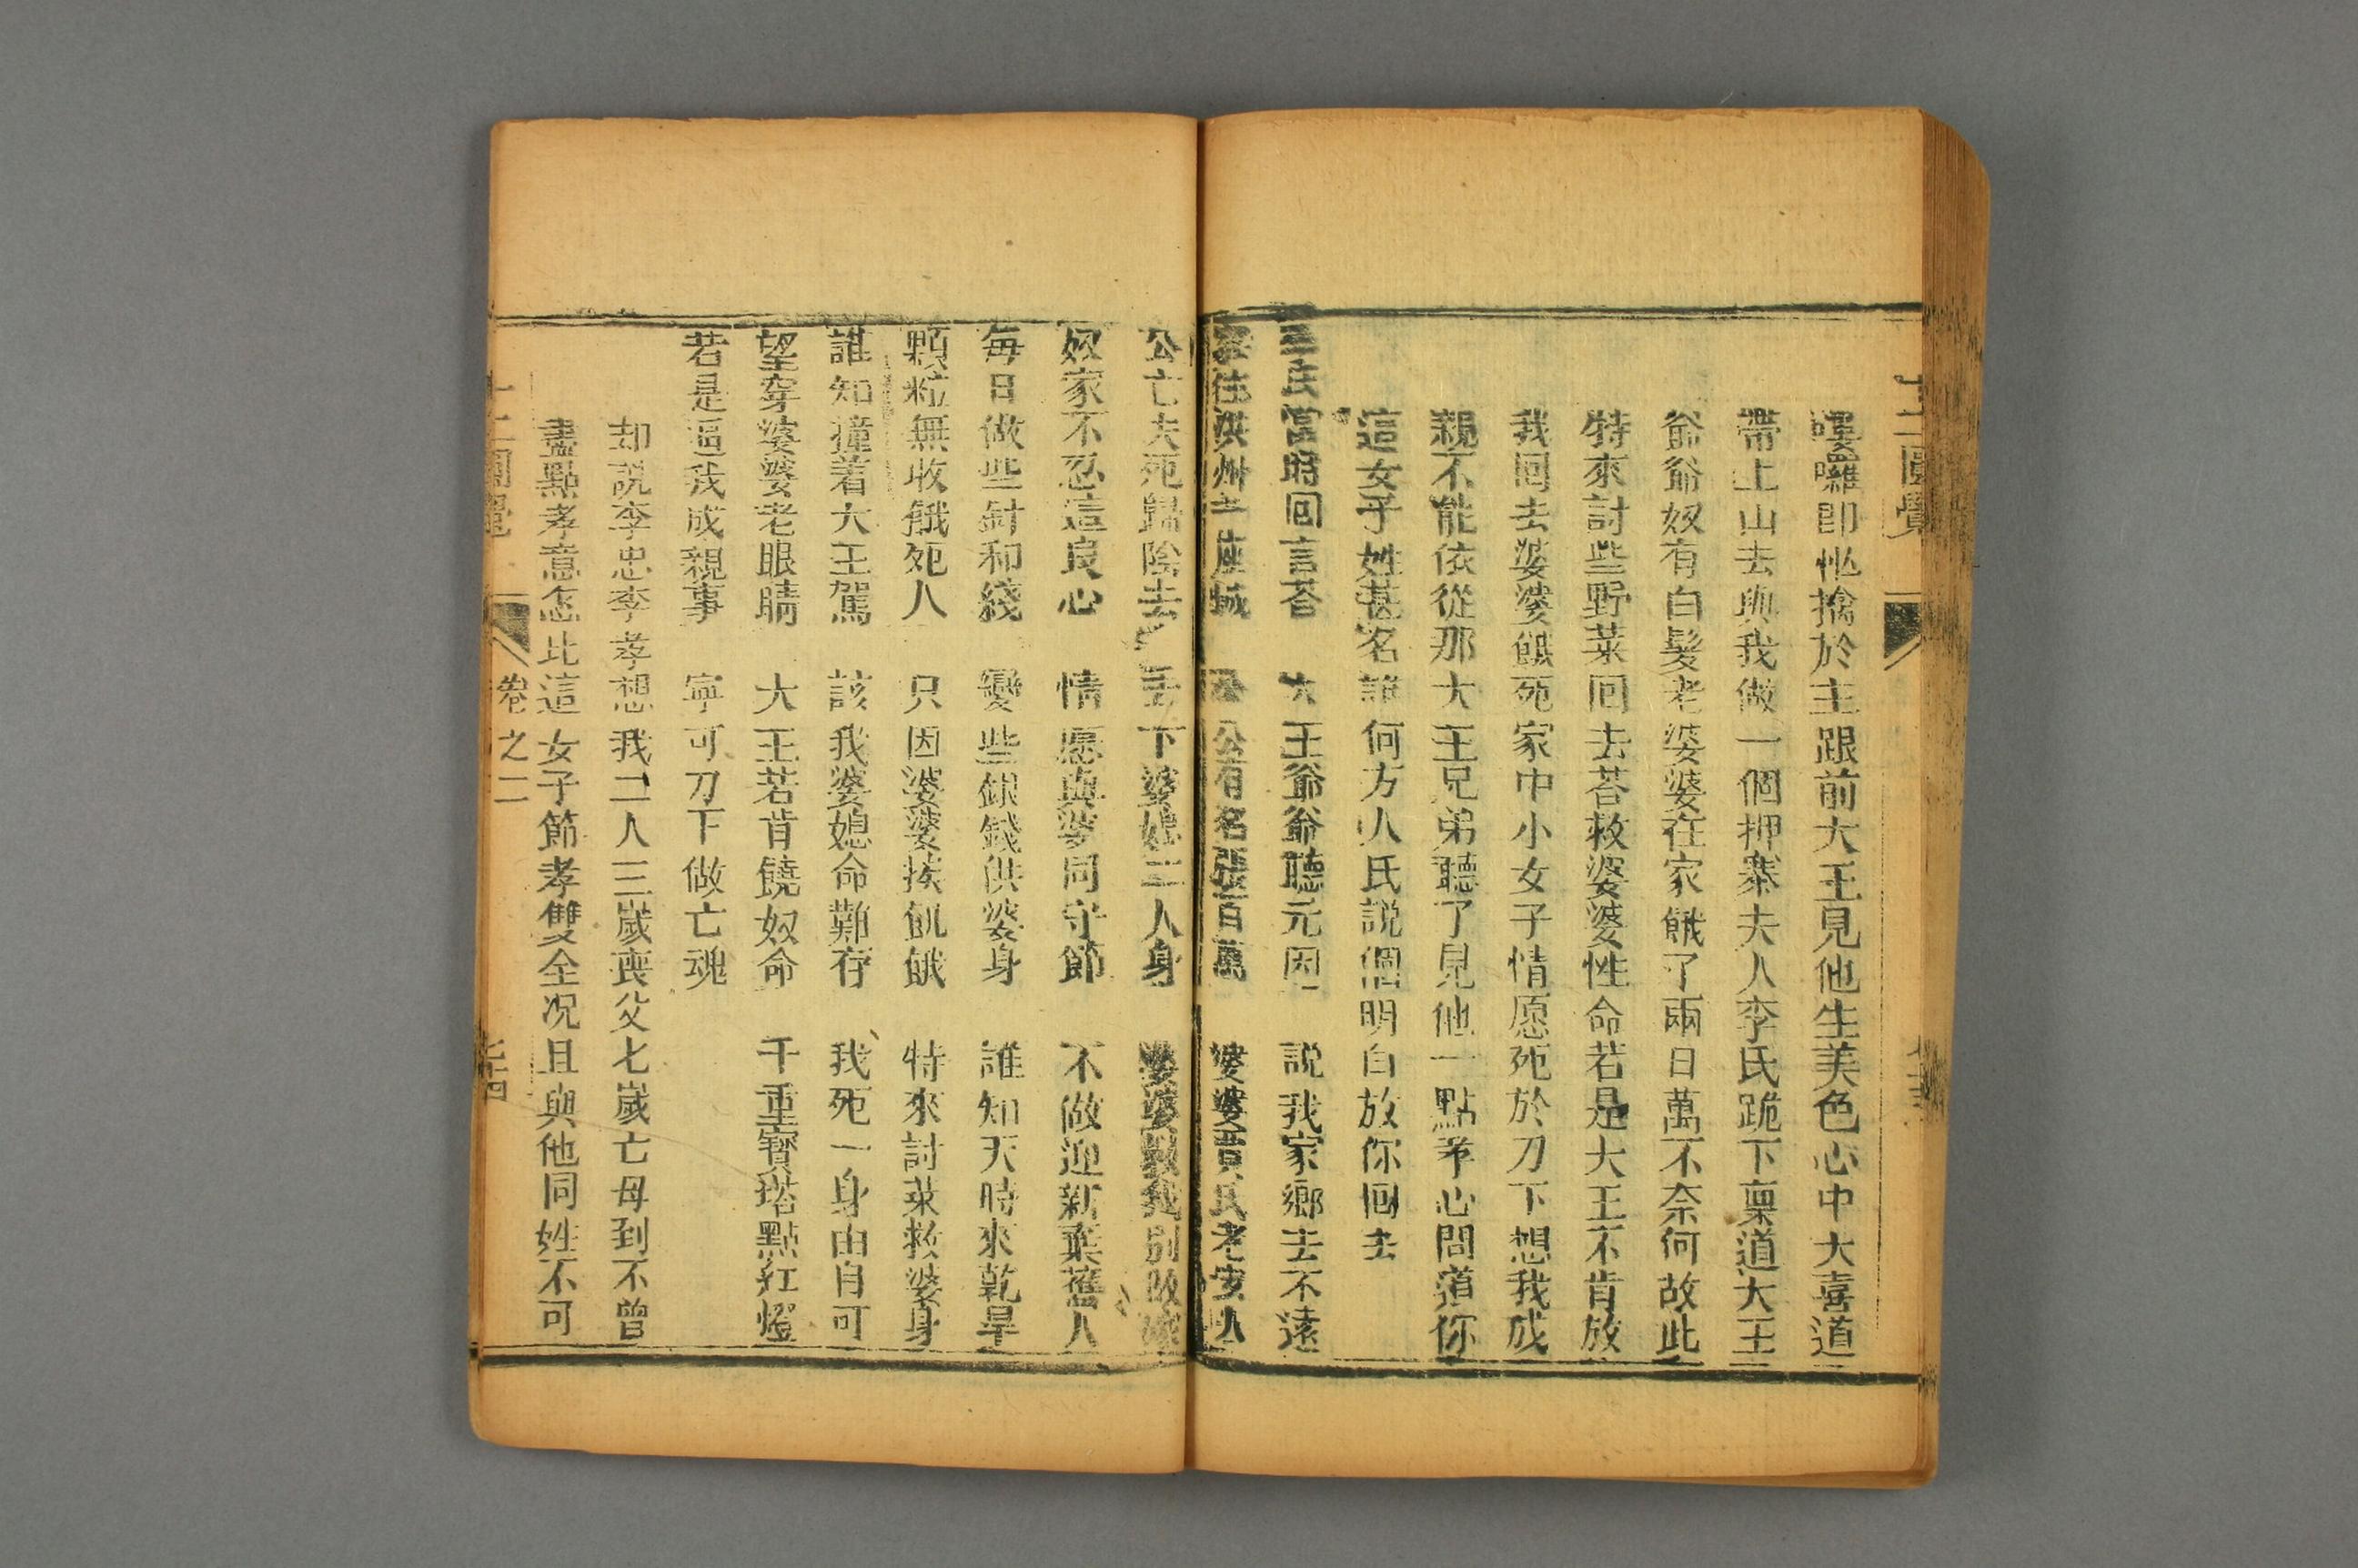 十二圓覺
嘍囉即忙擒於主跟前大王見他生美色心中大喜道
帶上山去與我做一個押寨夫人李氏跪下稟道大王
爺爺奴有白髮老婆婆在家餓了兩日萬不奈何故此
特來討些野菜回去荅救婆婆性命若是大王不肯放
我回去婆婆餓死家中小女子情愿死於刀下想我成
親不能依從那大王兄弟聽了見他一點孝心問道你
這女子姓甚名誰何方人氏説個明白放你回去
氏當時回言荅 大王爺爺聽元因 説我家鄉去不遠
家住洪州一座城 公公有名張百萬 婆婆賈氏老安人
公亡夫死歸陰去 丟下婆媳二人身 婆婆教我別改嫁
奴家不忍這良心 情愿與婆同守節 不做迎新棄舊人
每日做些針和綫 變些銀錢供婆身 誰知天時來乾旱
顆粒無收餓死人 只因婆婆挨飢餓 特來討菜救婆身
誰知撞着大王駕 該我婆媳命難存 我死一身由自可
望穿婆婆老眼睛 大王若肯饒奴命 千重寶塔點紅燈
若是逼我成親事 寧可刀下做亡魂
却説李忠李孝想我二人三歲喪父七歲亡母到不曾
盡點孝意怎比這女子節孝雙全况且與他同姓不可
十二圓覺 卷之二 七十四